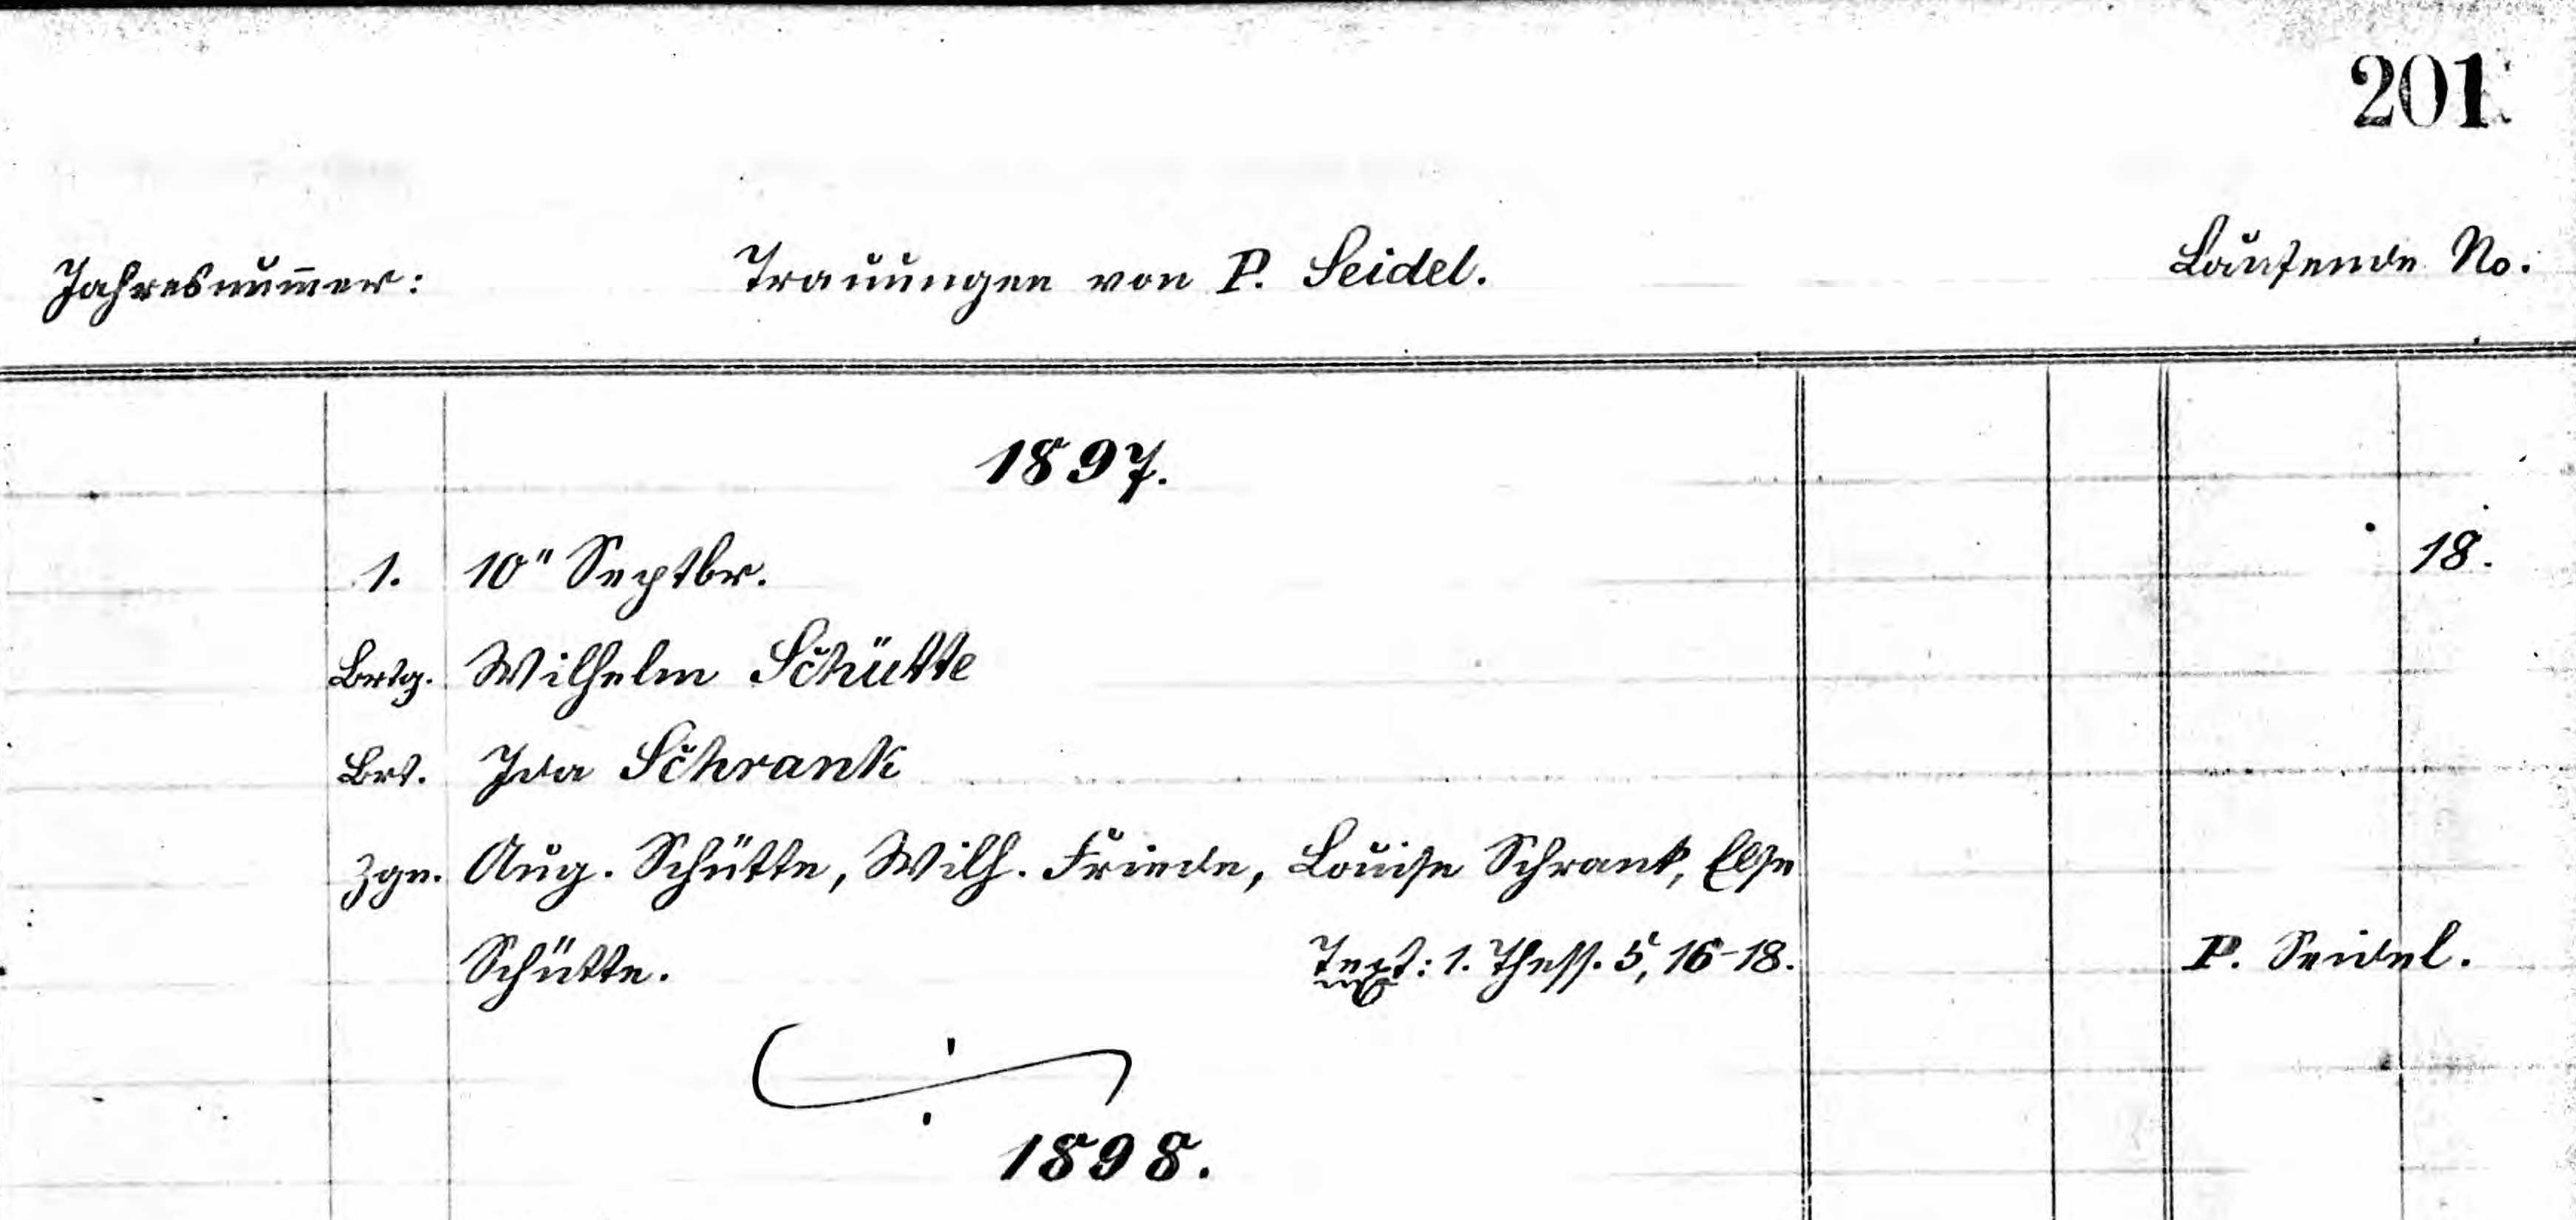 201.
Jahresnum̄er: Trauungen von P. Seidel. Laufende No.
1897.
1. 10" Septbr. 18.
Brtg. Wilhelm Schütte
Brt. Ida Schrank
Zgn. Aug. Schütte, Wilh. Friede, Louise Schrank, Else
Schütte. Text: 1. Thess. 5, 16-18. P. Seidel.
1898.